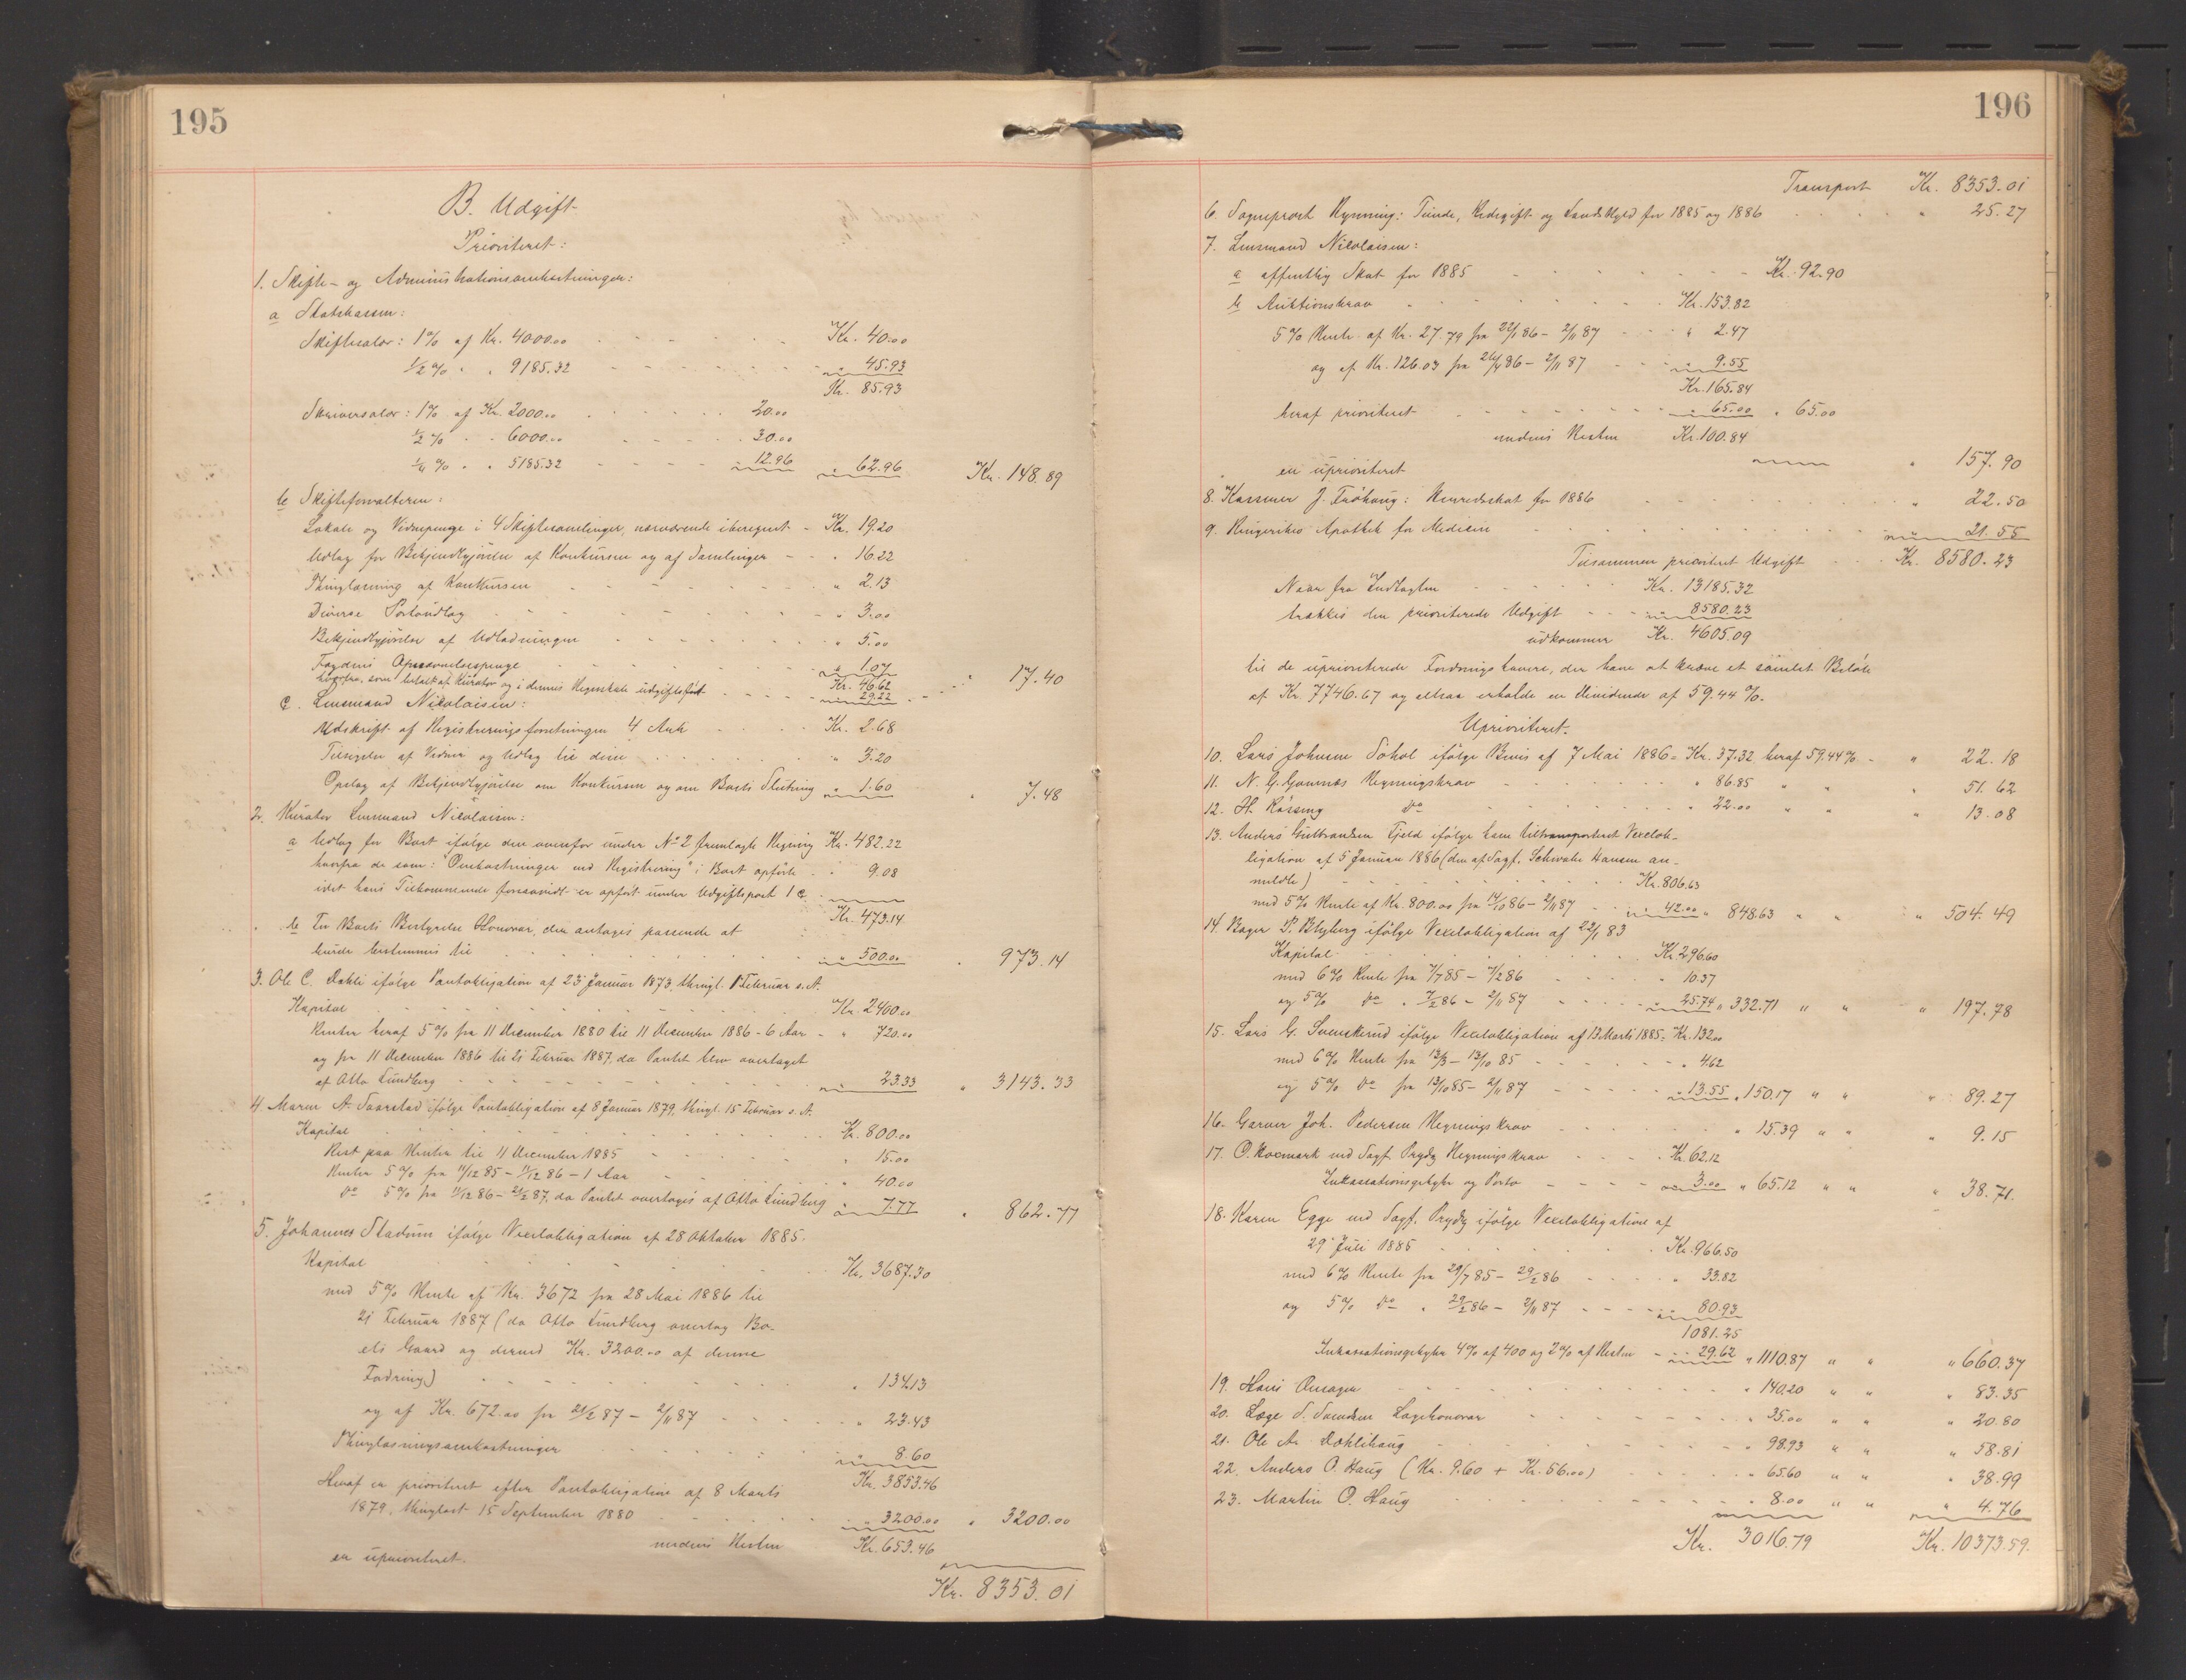 195
B. Udgift
Prioriteret:
1. Skifte- og Administrationsomkostninger:
a Statskassen:
Skiftesalær: 1% af Kr. 4000.00 Kr. 40.00
1/2 % " " 9185.32 " 45.93
Kr. 85.93
Skriversalær: 1% af Kr. 2000.00 20.00
1/2 % " " 6000.00 30.00
1/4 % " " 5185.32 " 12.96 " 62.96 Kr. 148.89
b Skifteforvalteren:
Lokale og Vidnepenge i 4 Skiftesamlinger, nærværende iberegnet Kr. 19.20
Udlæg for Bekjendtgjørelse af Konkursen og af Samlinger " 16.22
Thinglæsning af Konkursen " 2.13
Diverse Portoudlæg " 3.00
Bekjendtgjørelse af Udlodningen " 5.00
Fogdens Opsm­ævnelsespenge " 1.07
Kr. 46.62
hvorfra, som betalt af Kurator og i dennes Regnskab udgiftsført " 29.22 " 17.40
c. Lensmand Nikolaisen:
Udskrift af Registreringsforretningen 4 Ark Kr. 2.68
Tilsigelse af Vidner og Udlæg til disse " 3.20
Opslag af Bekjendtgjørelse om Konkursen og om Boets Slutning " 1.60 " 7.48
2. Kurator Lensmand Nikolaisen:
a Udlæg for Boet ifølge den ovenfor under No 2 fremlagte Regning Kr. 482.22
hvorfra de som: "Omkostninger ved Registrering" i Boet opførte " 9.08
idet hans Tilkommende forsaavidt er opført under Udgiftspost 1 c
Kr. 473.14
b For Boets Bestyrelse Honorar, der antages passende at
burde bestemmes til " 500.00 " 973.14
3. Ole C. Dæhli ifølge Pantobligation af 23 Januar 1873, thingl. 1 Februar s. A.
Kapital Kr. 2400.00
Renter heraf 5 % fra 11 December 1880 til 11 December 1886 - 6 Aar " 720.00
og fra 11 December 1886 til 21 Februar 1887, da Pantet blev overtaget
af Otto Lundberg " 23.33 " 3143.33
4 Maren A. Saastad ifølge Pantobligation af 8 Januar 1879, thingl. 15 Februar s. A.
Kapital Kr. 800.00
Rest paa Renter til 11 December 1885 " 15.00
Renter 5 % fra 11/12 85 - 11/12 86 - 1 Aar " 40.00
Do 5 % fra 11/12 86 - 21/2 87, da Pantet overtoges af Otto Lundberg " 7.77 " 862.77
5. Johannes Stadum ifølge Vexelobligation af 28 Oktober 1885.
Kapital Kr. 3687.30
med 5 % Rente af Kr. 3672 fra 28 Mai 1886 til
21 Februar 1887 (da Otto Lundberg overtog Bo-
ets Gaard og dermed Kr. 3200.00 af denne
Fordring) " 134.13
og af Kr. 672.00 fra 21/2 87 - 2/11 87 " 23.43
Thinglæsningsomkostninger " 8.60
Kr. 3853.46
Heraf er prioriteret efter Pantobligation af 8 Marts
1879, thinglæst 15 September 1880 " 3200.00 " 3200.00
medens Resten Kr. 653.46
er uprioriteret.
Kr. 8353.01
196
Transport Kr. 8353.01
6. Sogneprest Hynning: Tiende, Redsgift og Landskyld for 1885 og 1886 " 25.27
7. Lensmand Nikolaisen:
a offentlig Skat for 1885 Kr. 92.90
b Auktionskrav Kr. 153.82
5 % Rente af Kr. 27.79 fra 22/1 86 - 2/11 87 " 2.47
og af Kr. 126.03 fra 26/4 86 - 2/11 87 " 9.55
Kr. 165.84
heraf prioriteret " 65.00 " 65.00
medens Resten Kr. 100.84
er uprioriteret " 157.90
8. Kasserer J. Frøhaug: Herredsskat for 1886 " 22.50
9. Ringerikes Apothek for Medicin " 21.55
Tilsammen prioriteret Udgift Kr. 8580.23
Naar fra Indtægten Kr. 13185.32
trækkes den prioriterede Udgift " 8580.23
udkommer Kr. 4605.09
til de uprioriterede Fordringshavere, der have at kræve et samlet Beløb
af Kr. 7746.67 og altsaa erholde en Dividende af 59.44 %.
Uprioriteret.
10. Lars Johnsen Sohol ifølge Bevis af 7 Mai 1886 = Kr. 37.32 heraf 59.44 % " 22.18
11. N. G. Gaurnæs Regningskrav " 86.85 " " " 51.62
12. H. Rössing Do " 22.00 " " " 13.08
13. Anders Gulbrandsen Fjeld ifølge ham tiltransporteret Vexelob-
ligation af 5 Januar 1886 (den af Sagf. Schwabe Hansen an-
meldte) Kr. 806.63
med 5 % Rente af Kr. 800.00 fra 14/10 86 - 2/11 87 " 42.00 " 848.63 " " " 504.49
14. Bager P. Blyberg ifølge Vexelobligation af 22/1 83
Kapital Kr. 296.60
med 6 % Rente fra 7/7 85 - 7/2 86 " 10.37
og 5 % Do " 7/2 86 - 2/11 87 " 25.74 " 332.71 " " " 197.78
15. Lars G. Svenskerud ifølge Vexelobligation af 13 Marts 1885 = Kr. 132.00
med 6 % Rente fra 13/3 - 13/10 85 " 4.62
og 5 % Do fra 13/10 85 - 2/11 87 " 13.55 " 150.17 " " " 89.27
16. Garver Joh. Pedersen Regningskrav " 15.39 " " " 9.15
17. O. Roemark ved Sagf. Prydz Regningskrav Kr. 62.12
Inkassationsgebyhr og Porto " 3.00 " 65.12 " " " 38.71.
18. Karen Egge ved Sagf. Prydz ifølge Vexelobligation af
29 Juli 1885 Kr. 966.50
med 6 % Rente fra 29/7 85 - 29/2 86 " 33.82
og 5 % Do " 29/2 86 - 2/11 87 " 80.93
1081.25
Inkassationsgebyhr 4 % af 400 og 2 % af Resten " 29.62 " 1110.87 " " " 660.37
19. Hans Onsager " 140.20 " " " 83.35
20. Læge S. Svendsen Lægehonorar " 35.00 " " " 20.80
21. Ole A. Dæhlihaug " 98.93 " " " 58.81
22. Anders O. Haug (Kr. 9.60 + Kr. 56.00) " 65.60 " " " 38.99
23. Martin O. Haug " 8.00 " " " 4.76
Kr. 3016.79 Kr. 10373.59.